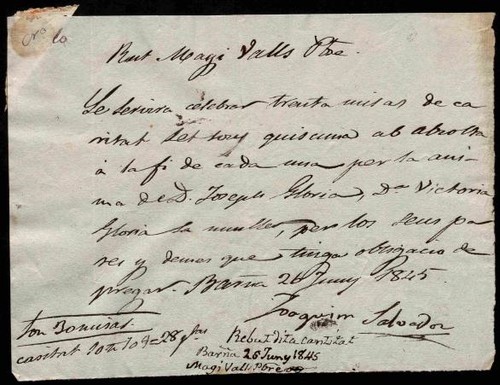 Rnt Magi Valls Pbre.
Se servira celebrar trenta misas de ca
ritat set sous quiscuna ab absolta
á la fi de cada una per la ani
ma de D. Joseph Gloria, Da Victoria
Gloria sa muller, per los seus pa
res y demes que tinga obligacio de
pregar. Barña 26 Juny 1845
Joaquim Salvador
son 30 misas
caritat 10 ll 10 s
Rebut dita caritat
Barña 26 Juny 1845
Magi Valls Pbre